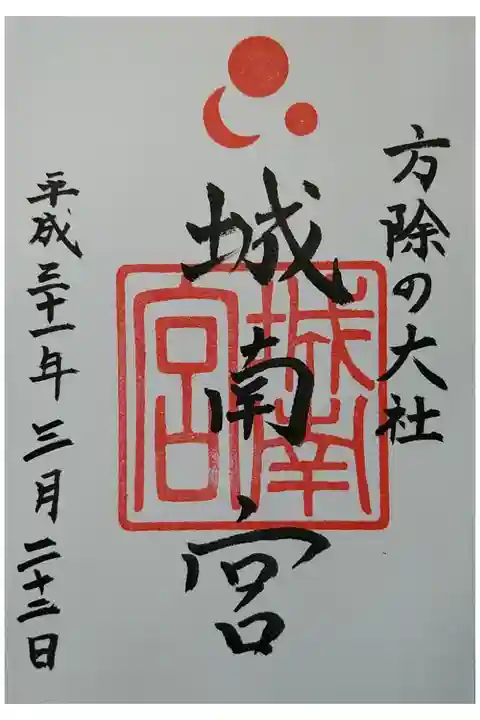 方除の大社
城南宮
城南宮
平成三十一年三月二十二日